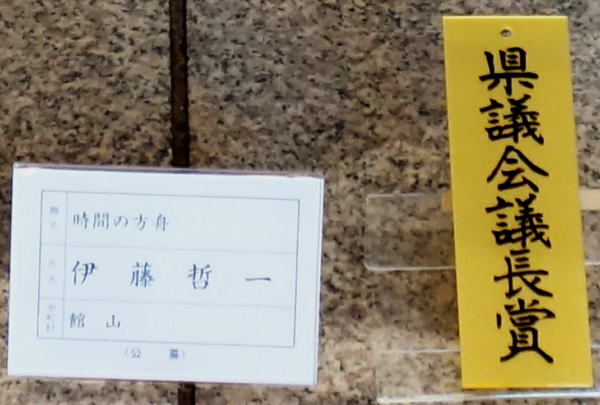 題名 時間の方舟
氏名 伊藤哲一
市町村 館山
(公募)
県議会議長賞